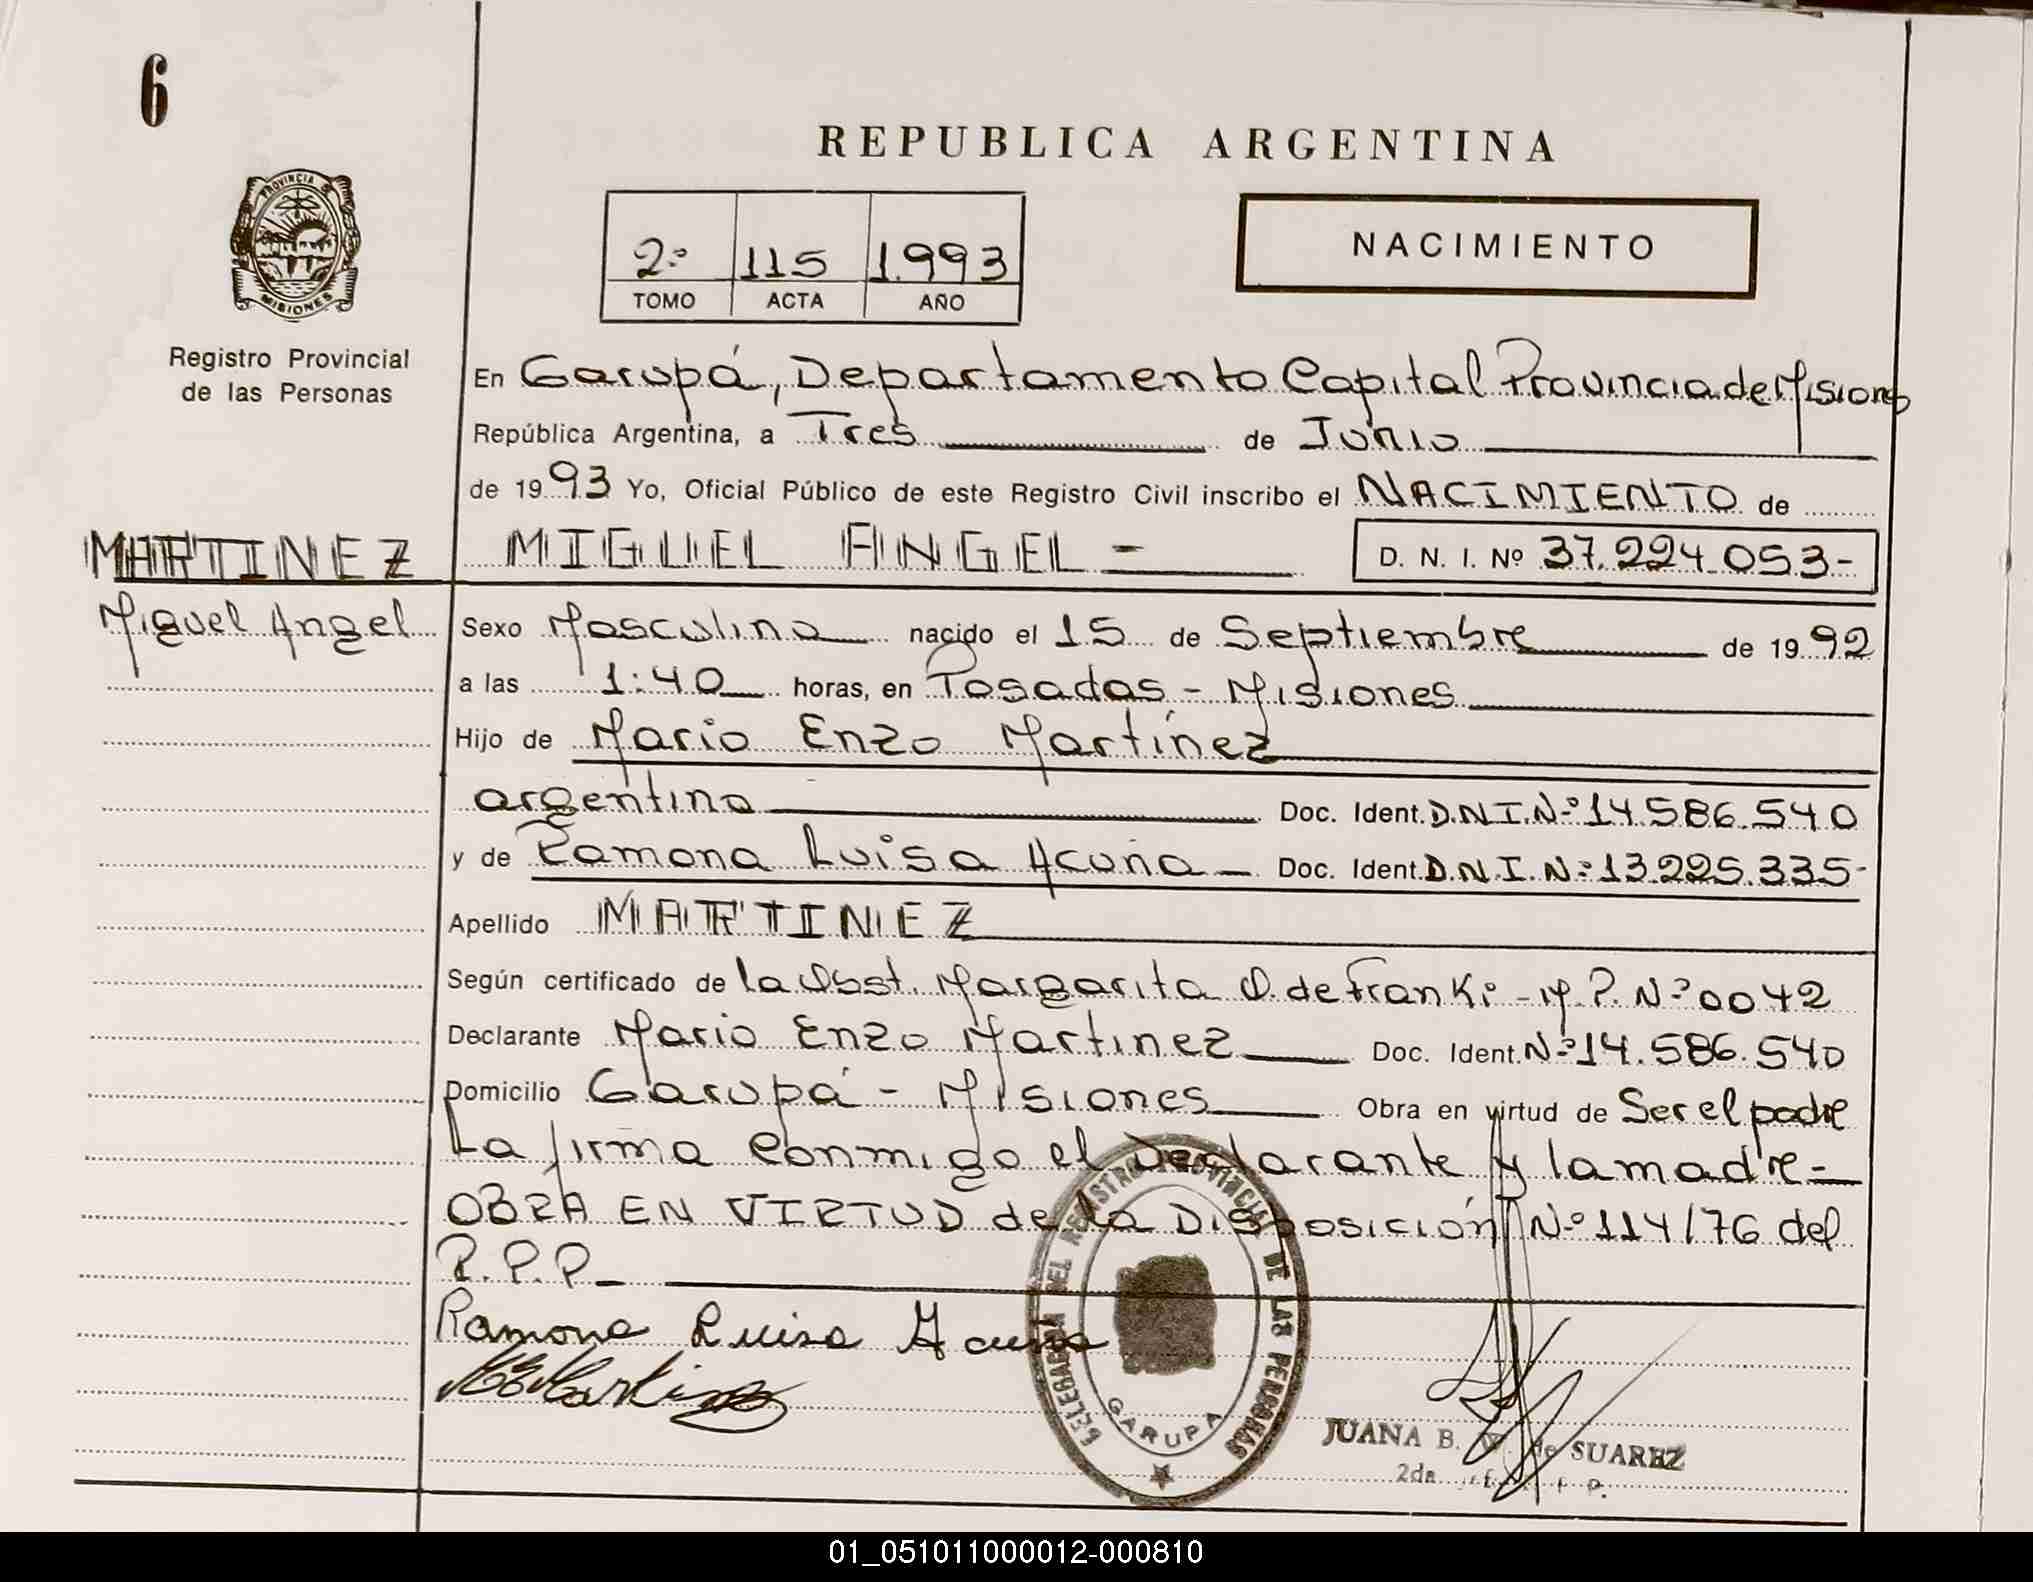 6
REPUBLICA ARGENTINA
PROVINCIA DE
MISIONES
Registro Provincial
de las Personas
2º 115 1.993
TOMO ACTA AÑO
NACIMIENTO
En Garupá, Departamento Capital Provincia de Misiones
República Argentina, a Tres de Junio
de 1993 Yo, Oficial Público de este Registro Civil inscribo el NACIMIENTO de
MARTINEZ MIGUEL ANGEL = D. N. I. Nº 37.224.053-
Miguel Angel Sexo Masculino nacido el 15 de Septiembre de 1992
a las 1:40 horas, en Posadas - Misiones
Hijo de Mario Enzo Martínez
argentino Doc. Ident. D.N.I.Nº 14.586.540
y de Ramona Luisa Acuña - Doc. Ident. D.N.I.Nº 13.225.335-
Apellido MARTINEZ
Según certificado de la Obst. Margarita O. de Franki - M.P. Nº 0042
Declarante Mario Enzo Martinez Doc. Ident. Nº 14.586.540
Domicilio Garupá - Misiones Obra en virtud de Ser el padre
La firma conmigo el Declarante y la madre =
OBRA EN VIRTUD de la Disposición Nº 114/76 del
R.P.P.
Ramona Luisa Acuña
MEMartinez
DELEGACION DEL REGISTRO PROVINCIAL DE LAS PERSONAS
GARUPA
JUANA B. W. de SUAREZ
2da
01_051011000012-000810